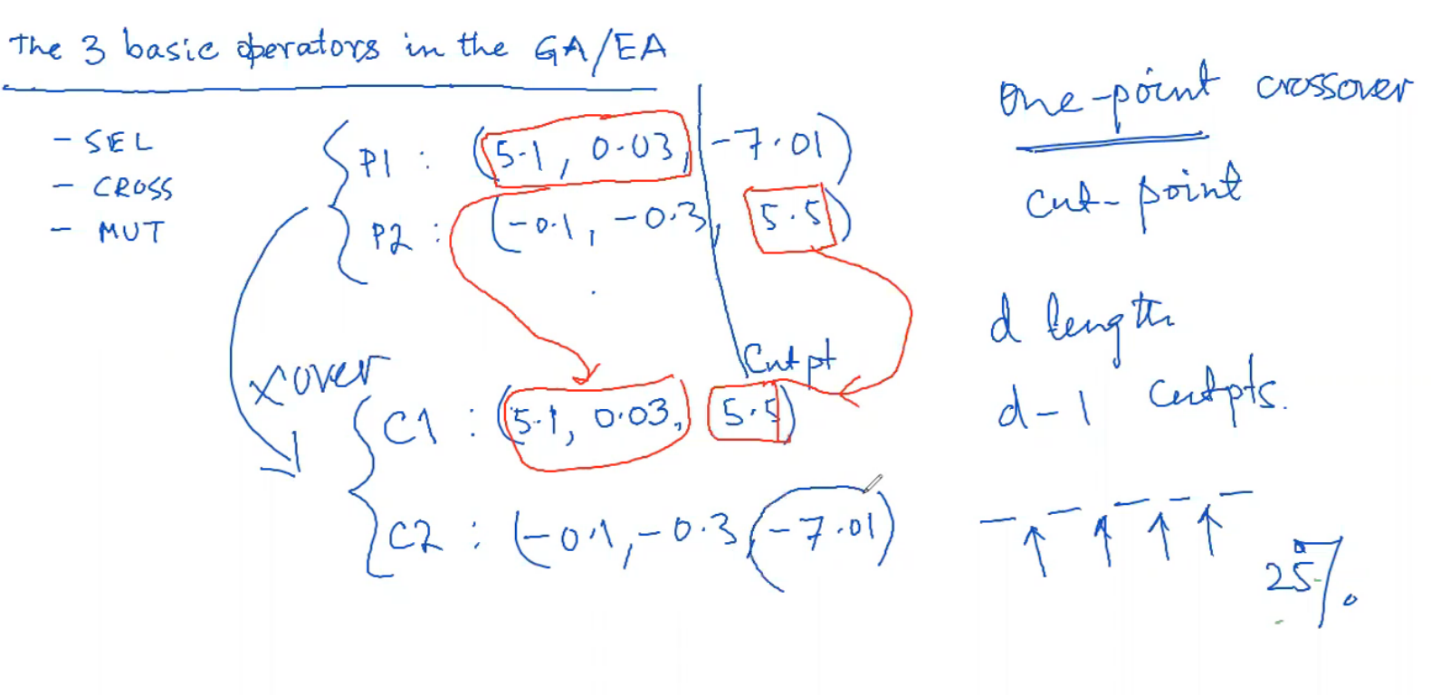 The 3 basic operators in the GA/EA
- SEL
- CROSS
- MUT
P1 : (5.1, 0.03, -7.01)
P2 : (-0.1, -0.3, 5.5)
Cut pt
Xover
C1 : (5.1, 0.03, 5.5)
C2 : (-0.1, -0.3, -7.01)
one-point crossover
cut-point
d length
d-1 cutpts.
25%